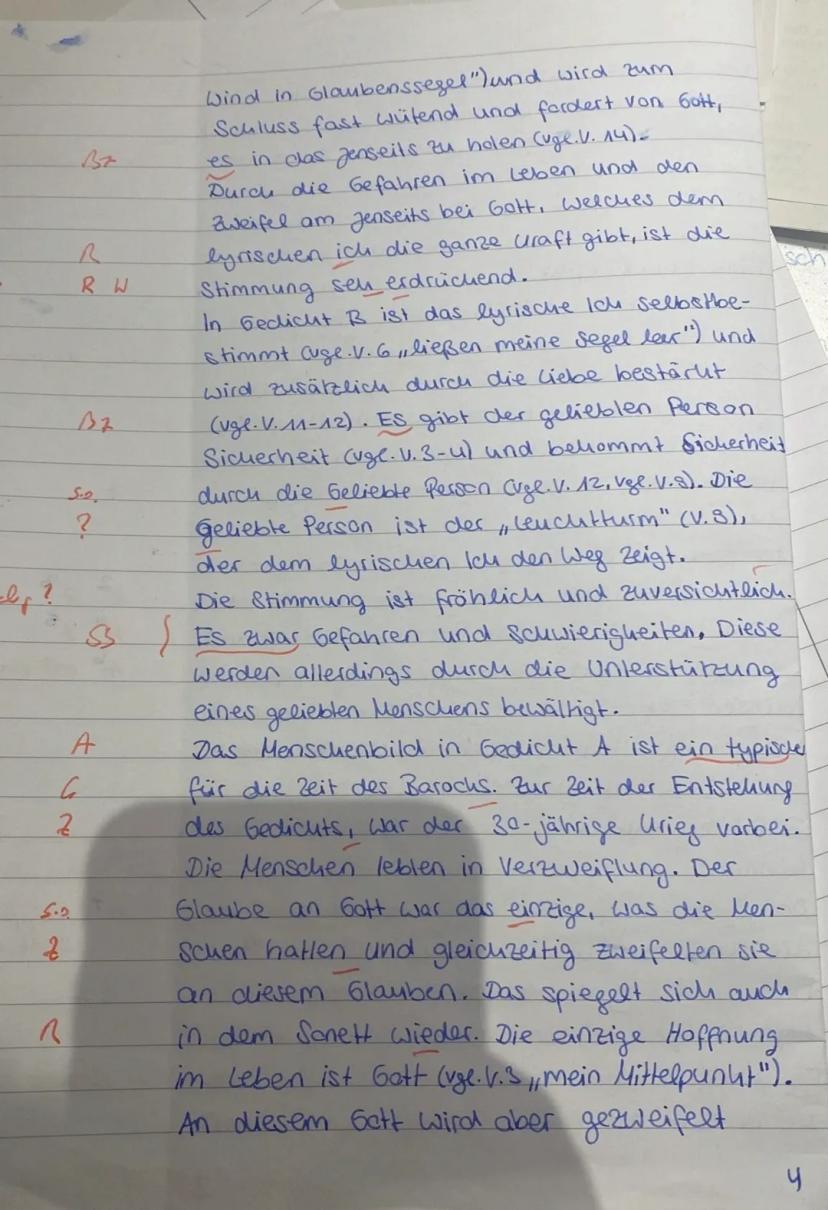 Wind in Glaubenssegel") und wird zum
Schluss fast wütend und fordert von Gott,
Bz es in das Jenseits zu holen (vgl. V. 14).
Durch die Gefahren im Leben und den
Zweifel am Jenseits bei Gott, welches dem
R lyrischen ich die ganze Kraft gibt, ist die
R W Stimmung seh erdrückend.
In Gedicht B ist das lyrische Ich selbstbe-
stimmt (vgl. V. 6 „ließen meine Segel leer") und
wird zusätzlich durch die Liebe bestärkt
Bz (vgl. V. 11-12). ES gibt der geliebten Person
Sicherheit (vgl. V. 3-4) und bekommt Sicherheit
s.o. durch die Geliebte Person (vgl. V. 12, vgl. V. 8). Die
? Geliebte Person ist der „Leuchtturm" (V. 8),
der dem lyrischen Ich den Weg zeigt.
? Die Stimmung ist fröhlich und zuversichtlich.
SS Es zwar Gefahren und Schwierigkeiten. Diese
werden allerdings durch die Unterstützung
eines geliebten Menschens bewältigt.
A Das Menschenbild in Gedicht A ist ein typische
G für die Zeit des Barocks. Zur Zeit der Entstehung
Z des Gedichts, war der 30-jährige Krieg vorbei.
Die Menschen lebten in Verzweiflung. Der
s.o. Glaube an Gott war das einzige, was die Men-
Z schen hatten und gleichzeitig zweifelten sie
an diesem Glauben. Das spiegelt sich auch
R in dem Sonett wieder. Die einzige Hoffnung
im Leben ist Gott (vgl. V. 3 „mein Mittelpunkt").
An diesem Gott wird aber gezweifelt
4